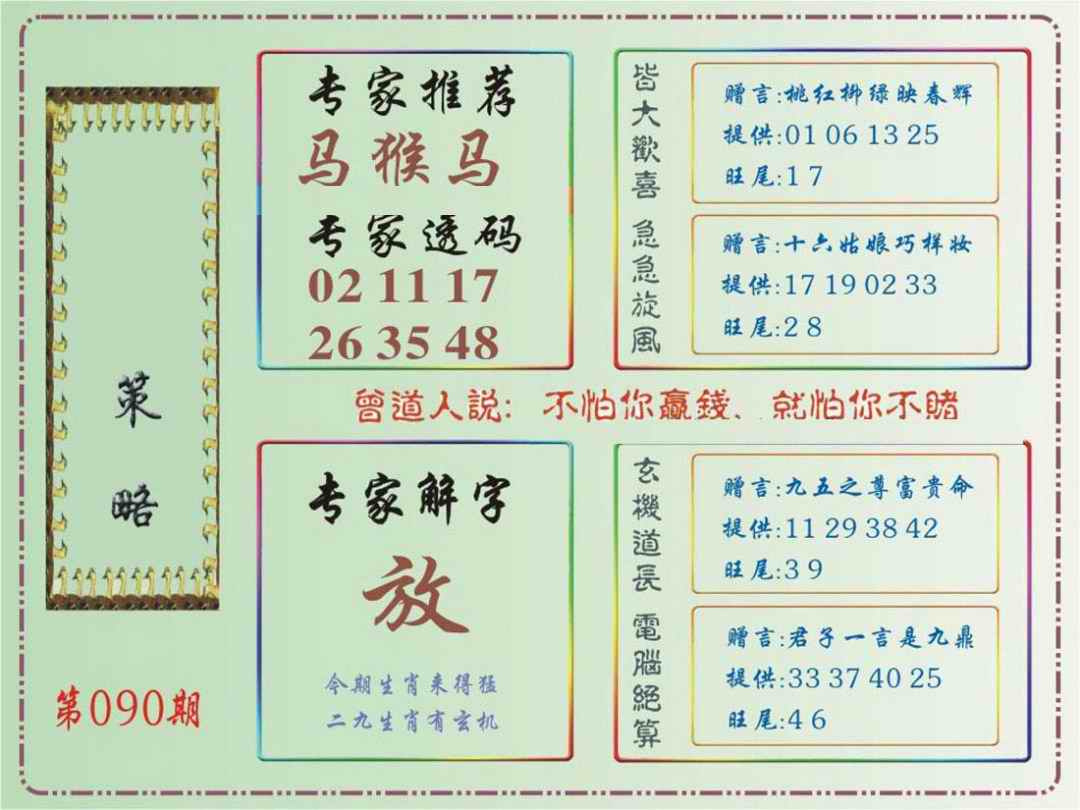 策
略
第090期
专家推荐
马猴马
专家透码
02 11 17
26 35 48
皆大歡喜
赠言:桃红柳绿映春辉
提供:01 06 13 25
旺尾:1 7
急急旋風
赠言:十六姑娘巧样妆
提供:17 19 02 33
旺尾:2 8
曾道人説: 不怕你贏錢、就怕你不賭
专家解字
放
今期生肖来得猛
二九生肖有玄机
玄機道長
赠言:九五之尊富贵命
提供:11 29 38 42
旺尾:3 9
電腦絕算
赠言:君子一言是九鼎
提供:33 37 40 25
旺尾:4 6